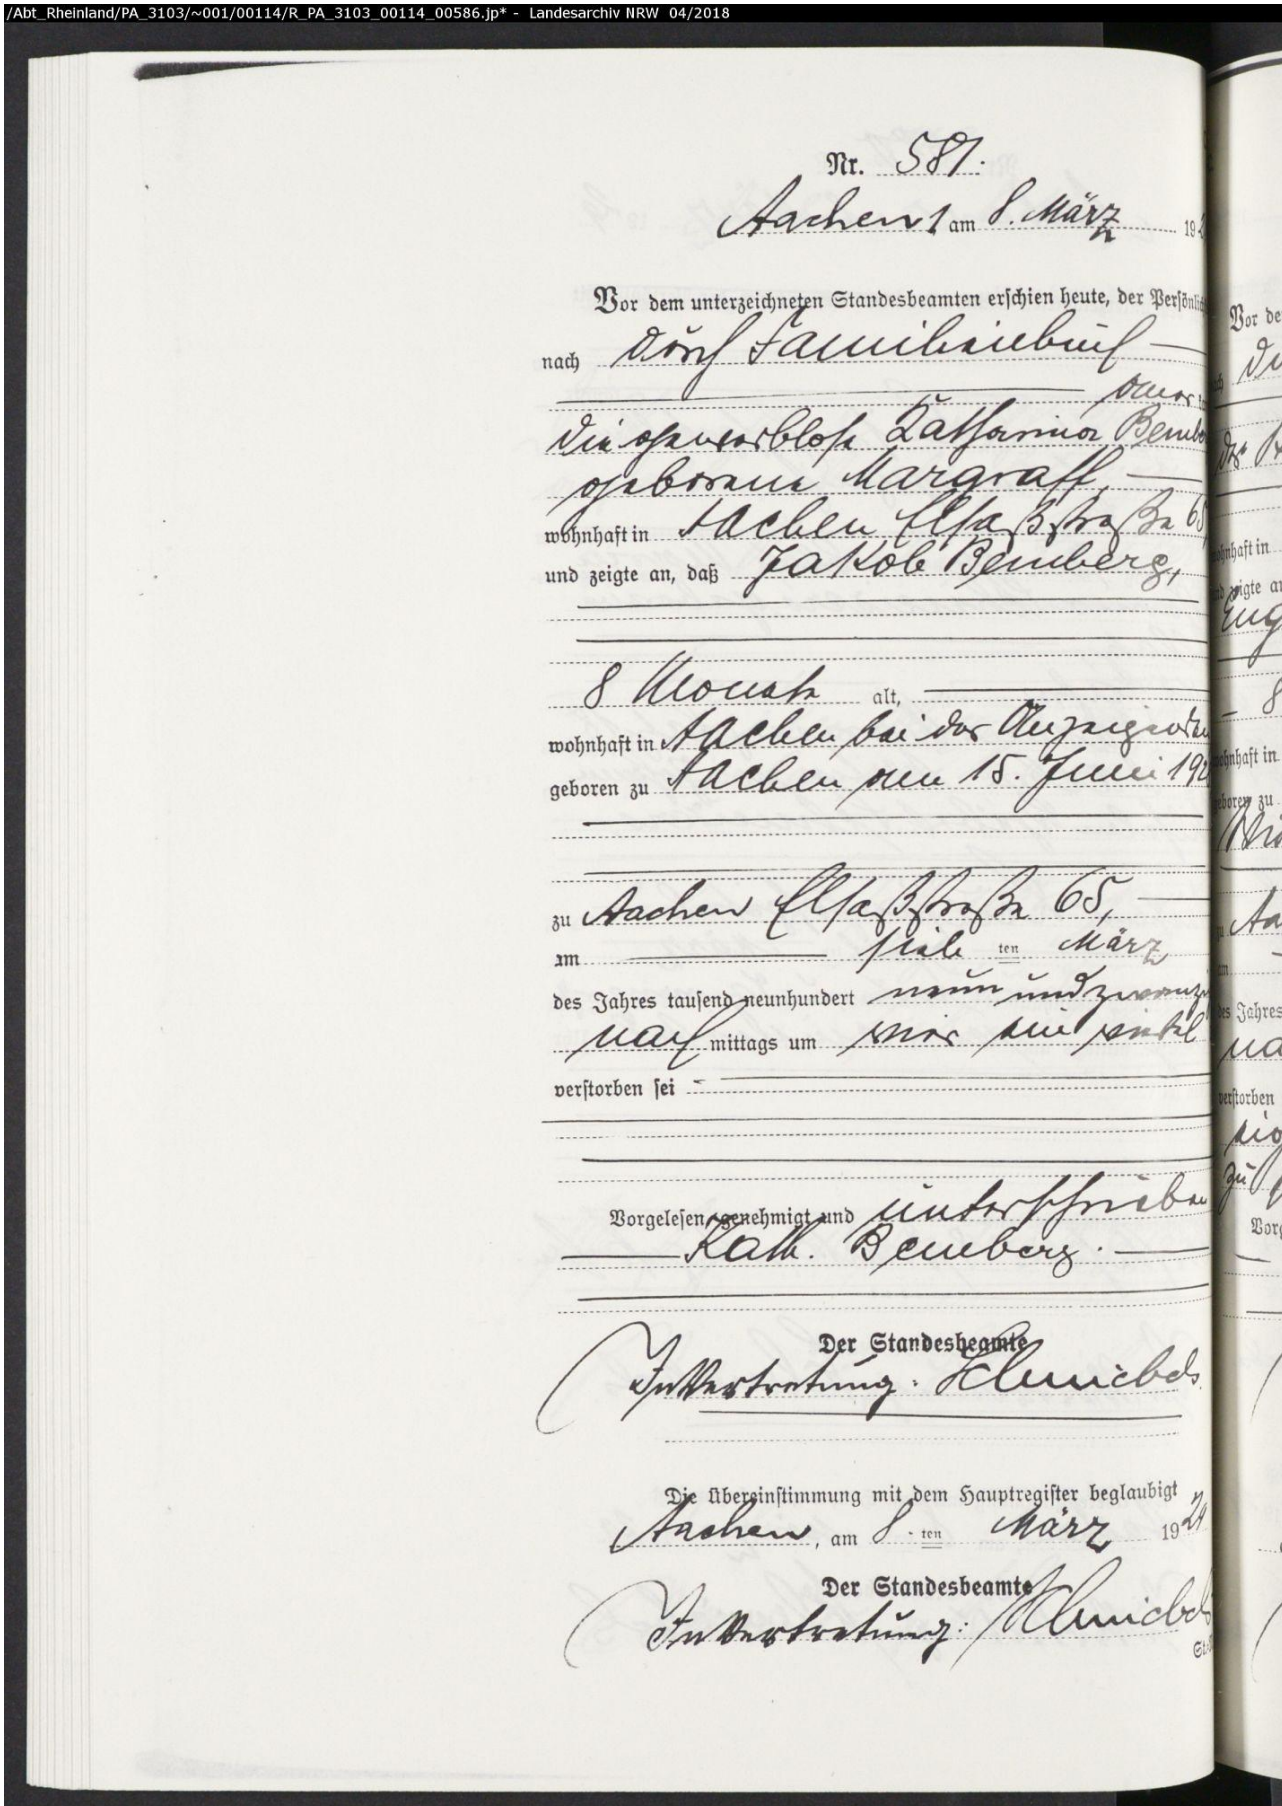 /Abt_Rheinland/PA_3103/~001/00114/R_PA_3103_00114_00586.jp* - Landesarchiv NRW 04/2018
Nr. 581.
Aachen 1 am 8. März 19
Vor dem unterzeichneten Standesbeamten erschien heute, der Persönlich
nach durch Familienbuch
aner
die gewerblose Katharina Bember
geborene Margraff,
wohnhaft in Aachen Elsaßstraße 65,
und zeigte an, daß Jakob Bemberg,
8 Monate alt,
wohnhaft in Aachen bei der Anzeigenden
geboren zu Aachen am 15. Juni 192
zu Aachen Elsaßstraße 65,
am sieb ten März
des Jahres tausend neunhundert neun und zwanzig
nach mittags um vier ein viertel
verstorben sei
Vorgelesen, genehmigt und unterschrieben
Kath. Bemberg.
Der Standesbeamte
In Vertretung:
Die Übereinstimmung mit dem Hauptregister beglaubigt
Aachen, am 8. ten März 1929
Der Standesbeamte
In Vertretung: